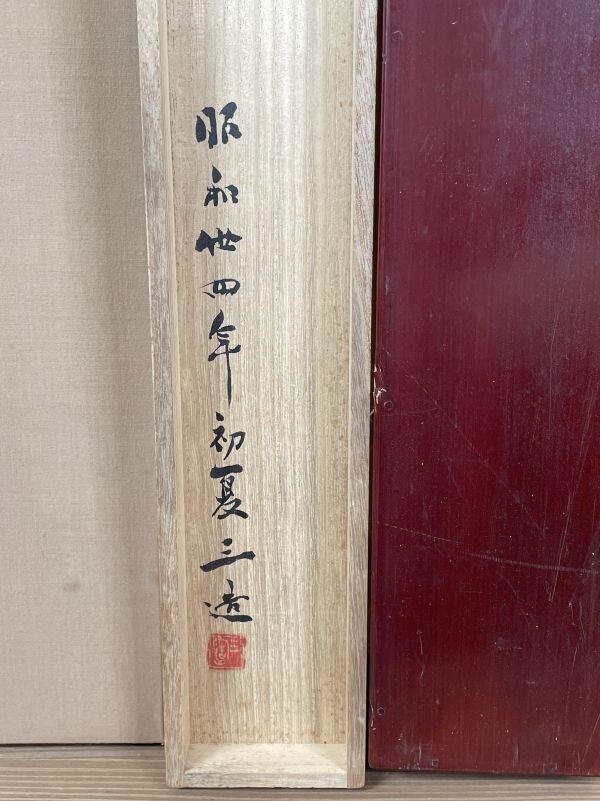 昭和丗四年初夏三造